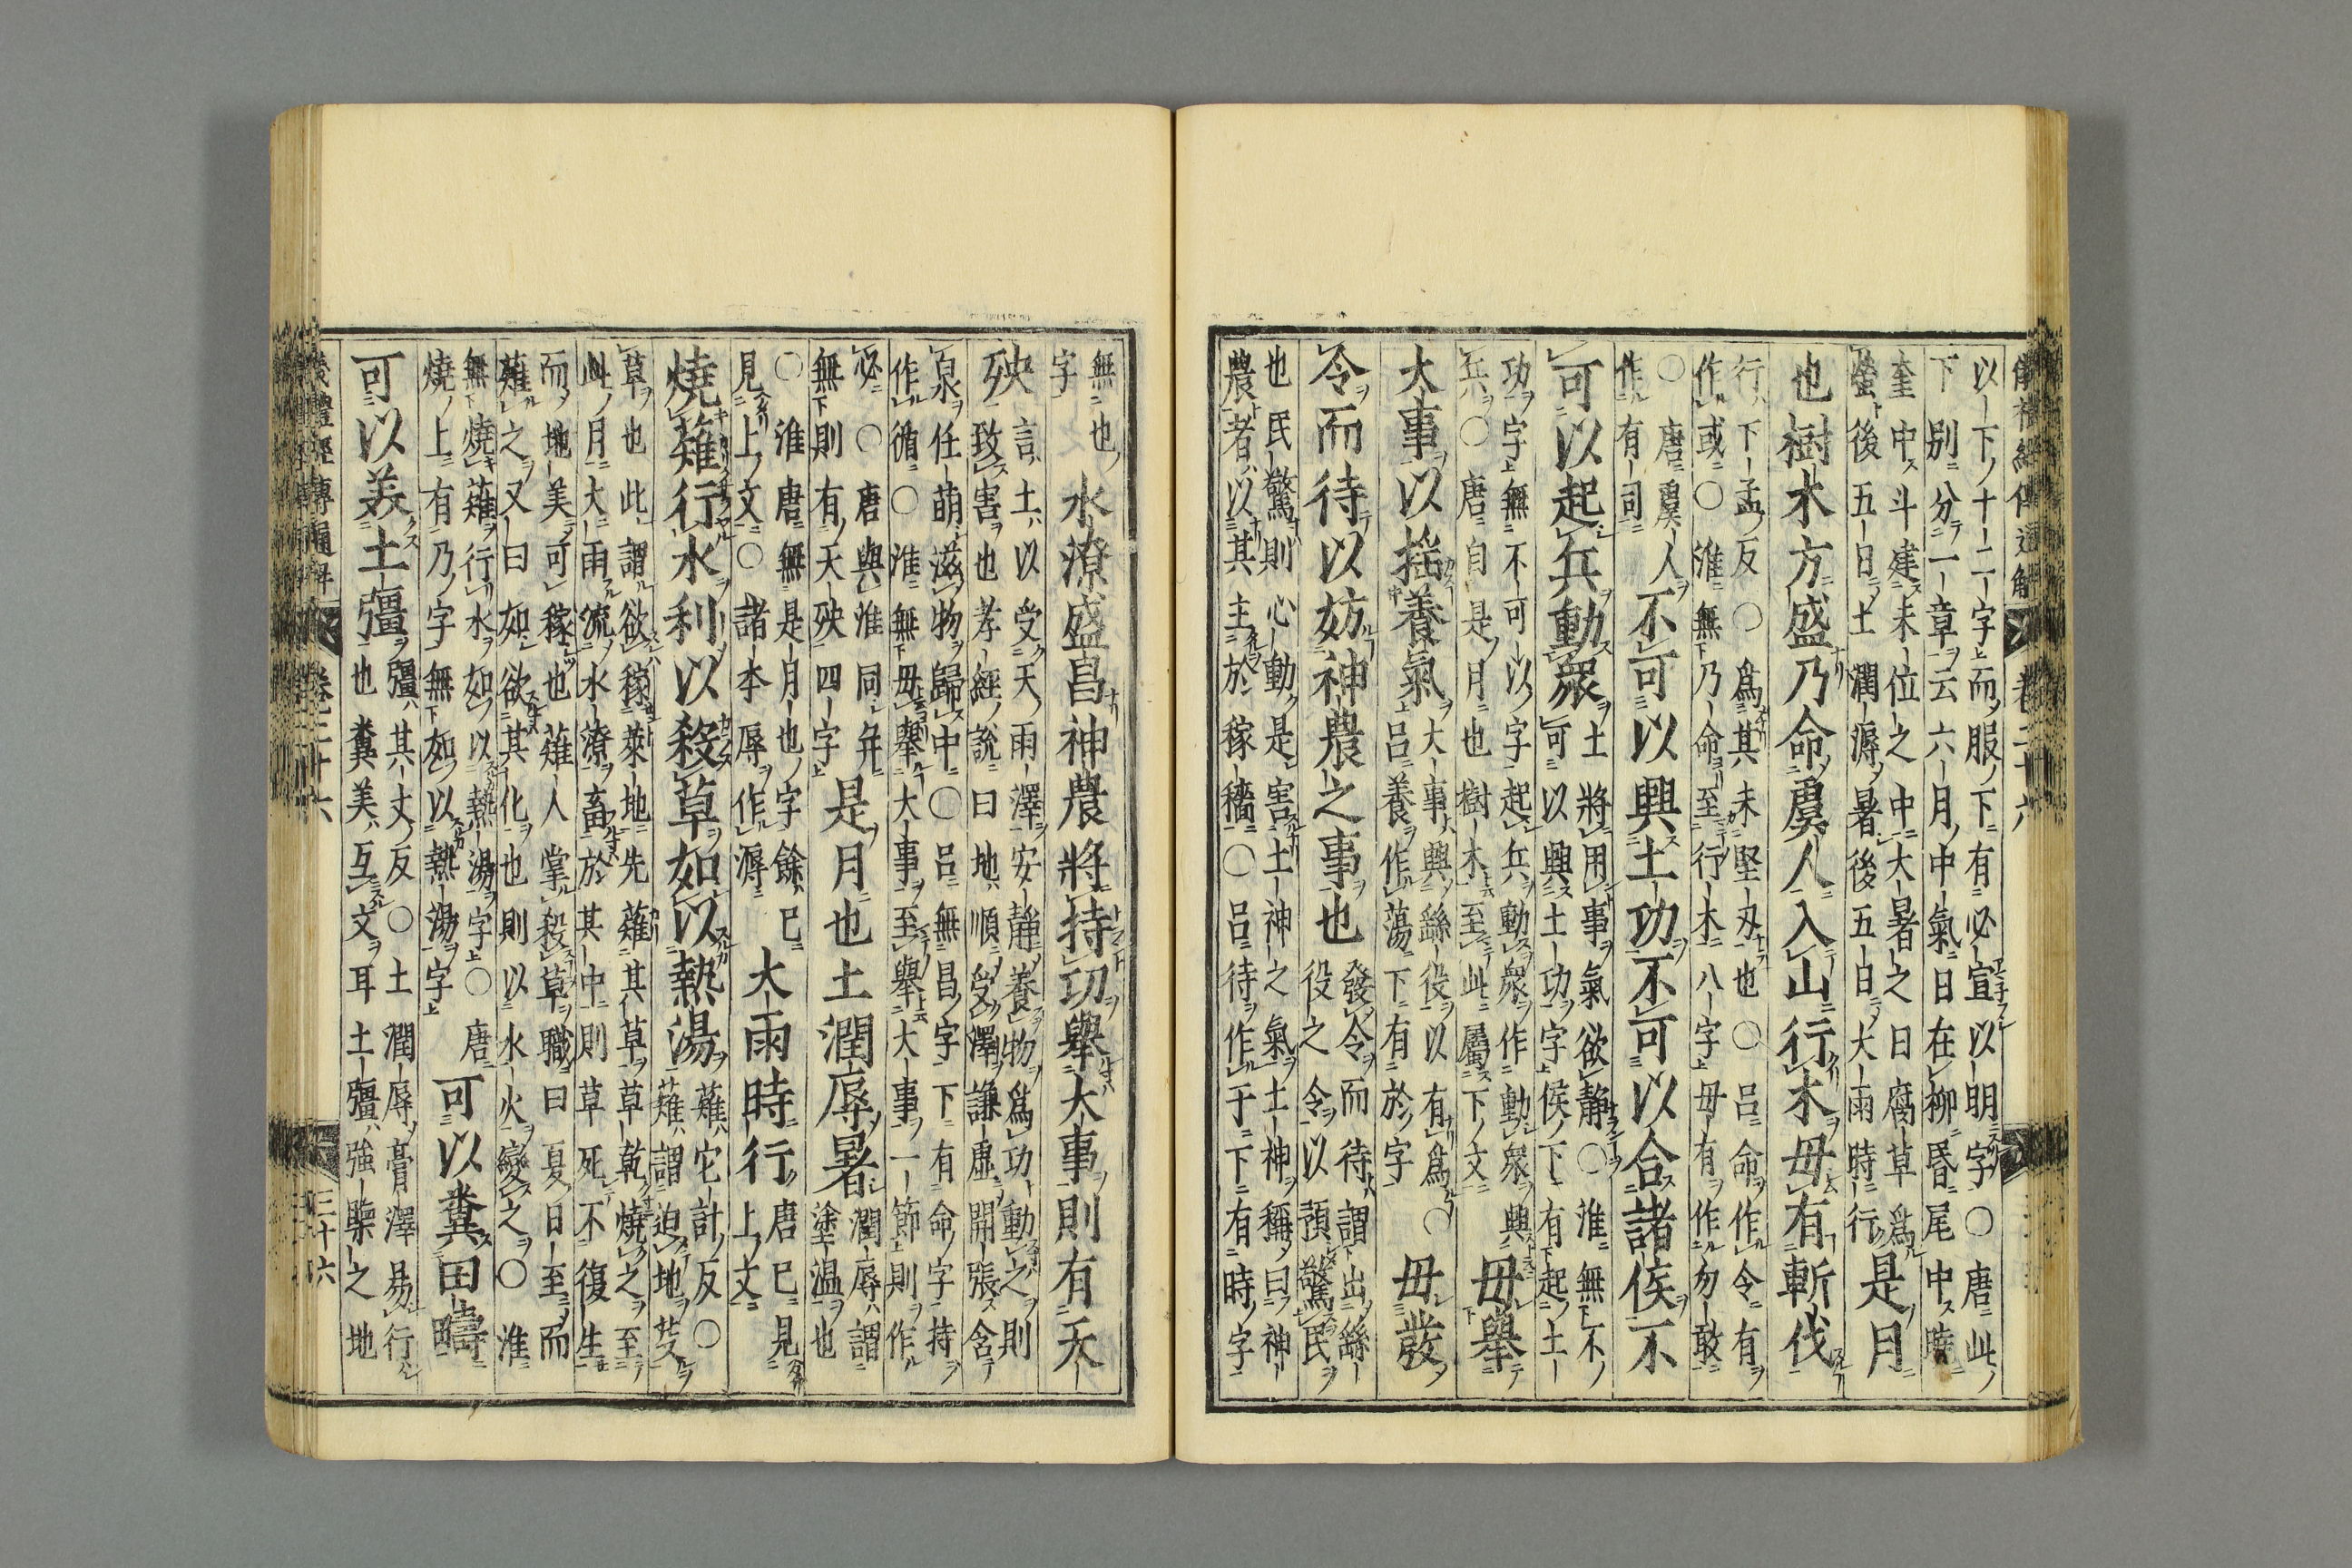 儀禮經傳通解 卷二十六
以下十二字而服下有必宣以明字○唐此
下別分一章云六月中氣日在柳昏尾中曉
奎中斗建未位之中大暑之日腐草為
螢後五日土潤溽暑後五日大雨時行
是月
也樹木方盛乃命虞人入山行木毋有斬伐
行下孟反○為其未堅刃也○呂命作令有
作或○淮無乃命至行木八字毋有作勿敢
○唐虞人
作有司
不可以興土功不可以合諸侯不
可以起兵動衆
土將用事氣欲静○淮無不
可以興土功字侯下有起土
功字無不可以字起兵動衆作動衆興
兵○唐自是月也樹木至此屬下文
毋舉
大事以揺養氣
大事興繇役以有為○
呂養作蕩下有於字
毋發
令而待以妨神農之事也
發令而待謂出繇
役之令以預驚民
也民驚則心動是害土神之氣土神稱曰神
農者以其主於稼穡○呂待作于下有時字
無也
字
水潦盛昌神農將持功舉大事則有天
殃
言土以受天雨澤安静養物為功動之則
致害也孝經說曰地順受澤謙虛開張含
泉任萌滋物歸中○呂無昌字下有命字持
作循○淮無毋舉大事至舉大事一節則作
必○唐與淮同弁
無則有天殃四字
是月也土潤辱暑
潤辱謂
塗温也
○淮唐無是月也字餘巳
見上文○諸本辱作溽
大雨時行
唐巳見
上文
燒薙行水利以殺草如以熱湯
薙它計反○
薙謂迫地芟
草也此謂欲稼萊地先薙其草草乾燒之至
此月大雨流水潦畜於其中則草死不復生
而地美可稼也薙人掌殺草職曰夏日至而
薙之又曰如欲其化也則以水火變之○淮
無燒薙行水如以熱湯字○唐
燒上有乃字無如以熱湯字
可以糞田疇
可以美土彊
彊其丈反○土潤辱膏澤易行
也糞美互文耳土彊強之地
儀禮經傳通解 卷二十六 三十六